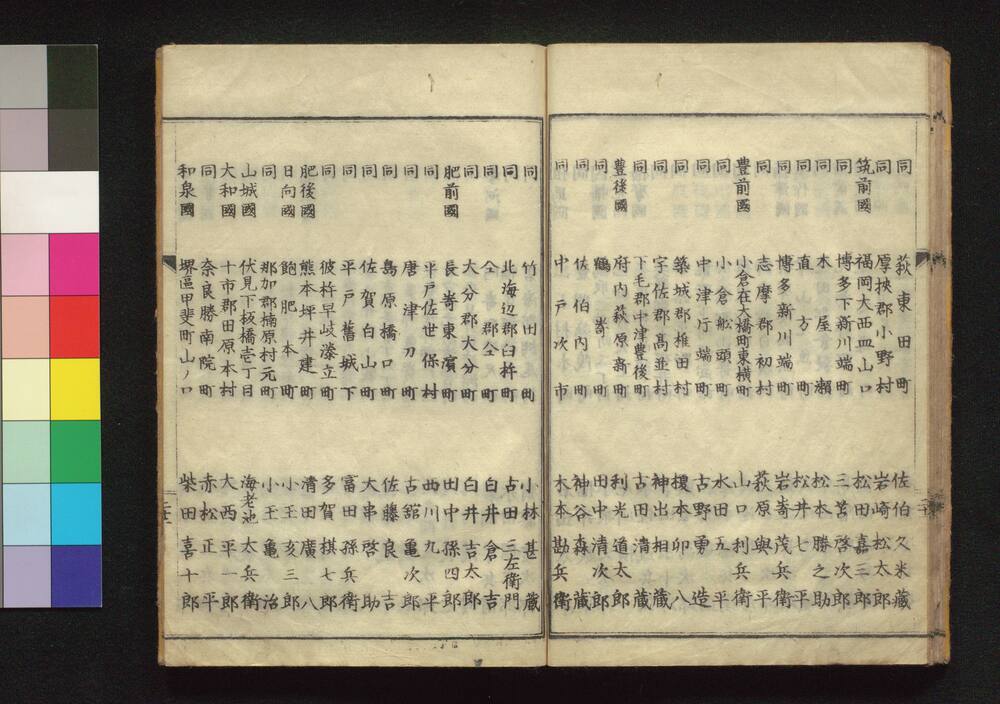 同 萩東田町 佐伯久米蔵
同 厚挾郡小野村 岩崎松太郎
筑前國 福岡大西皿山口 松田嘉三郎
同 博多下新川端町 三苫啓次郎
同 木屋瀬 松本勝之助
同 直方町 松井七平
同 博多新川端町 岩嵜茂兵衛
同 志摩郡初村 萩原與平
豊前國 小倉在大橋町東横町 山口利兵衛
同 小倉舩頭町 水田五平
同 中津行端町 古野勇造
同 築城郡椎田村 榎本卯八
同 宇佐郡髙並村 神出相蔵
同 下毛郡中津豊後町 古田清蔵
豊後國 府内萩原新町 利光道太郎
同 鶴嵜町 田中清次郎
同 佐伯内町 神谷森蔵
同 中戸次市 木本勘兵衛
同 竹田町 小林甚蔵
同 北海辺郡臼杵町 占田三左衛門
同 仝郡仝町 白井倉吉
同 大分郡大分町 白井吉太郎
肥前國 長嵜東濱町 田中孫四郎
同 平戸佐世保村 西川九平
同 唐津刀町 古舘亀次郎
同 島原橋口町 佐藤良吉
同 佐賀白山町 大串啓助
同 平戸舊城下 富田孫兵衛
同 彼杵早岐湊立町 多賀棋七郎
肥後國 熊本坪井建町 清田廣八
日向國 飽肥本町 小玉亥三郎
同 那加郡楠原村元町 小玉亀治
山城國 伏見下板橋壱丁目 海老池太兵衛
大和國 十市郡田原本村 大西平一郎
同 奈良勝南院町 赤松正平
和泉國 堺區甲斐町山ノ口 柴田喜十郎